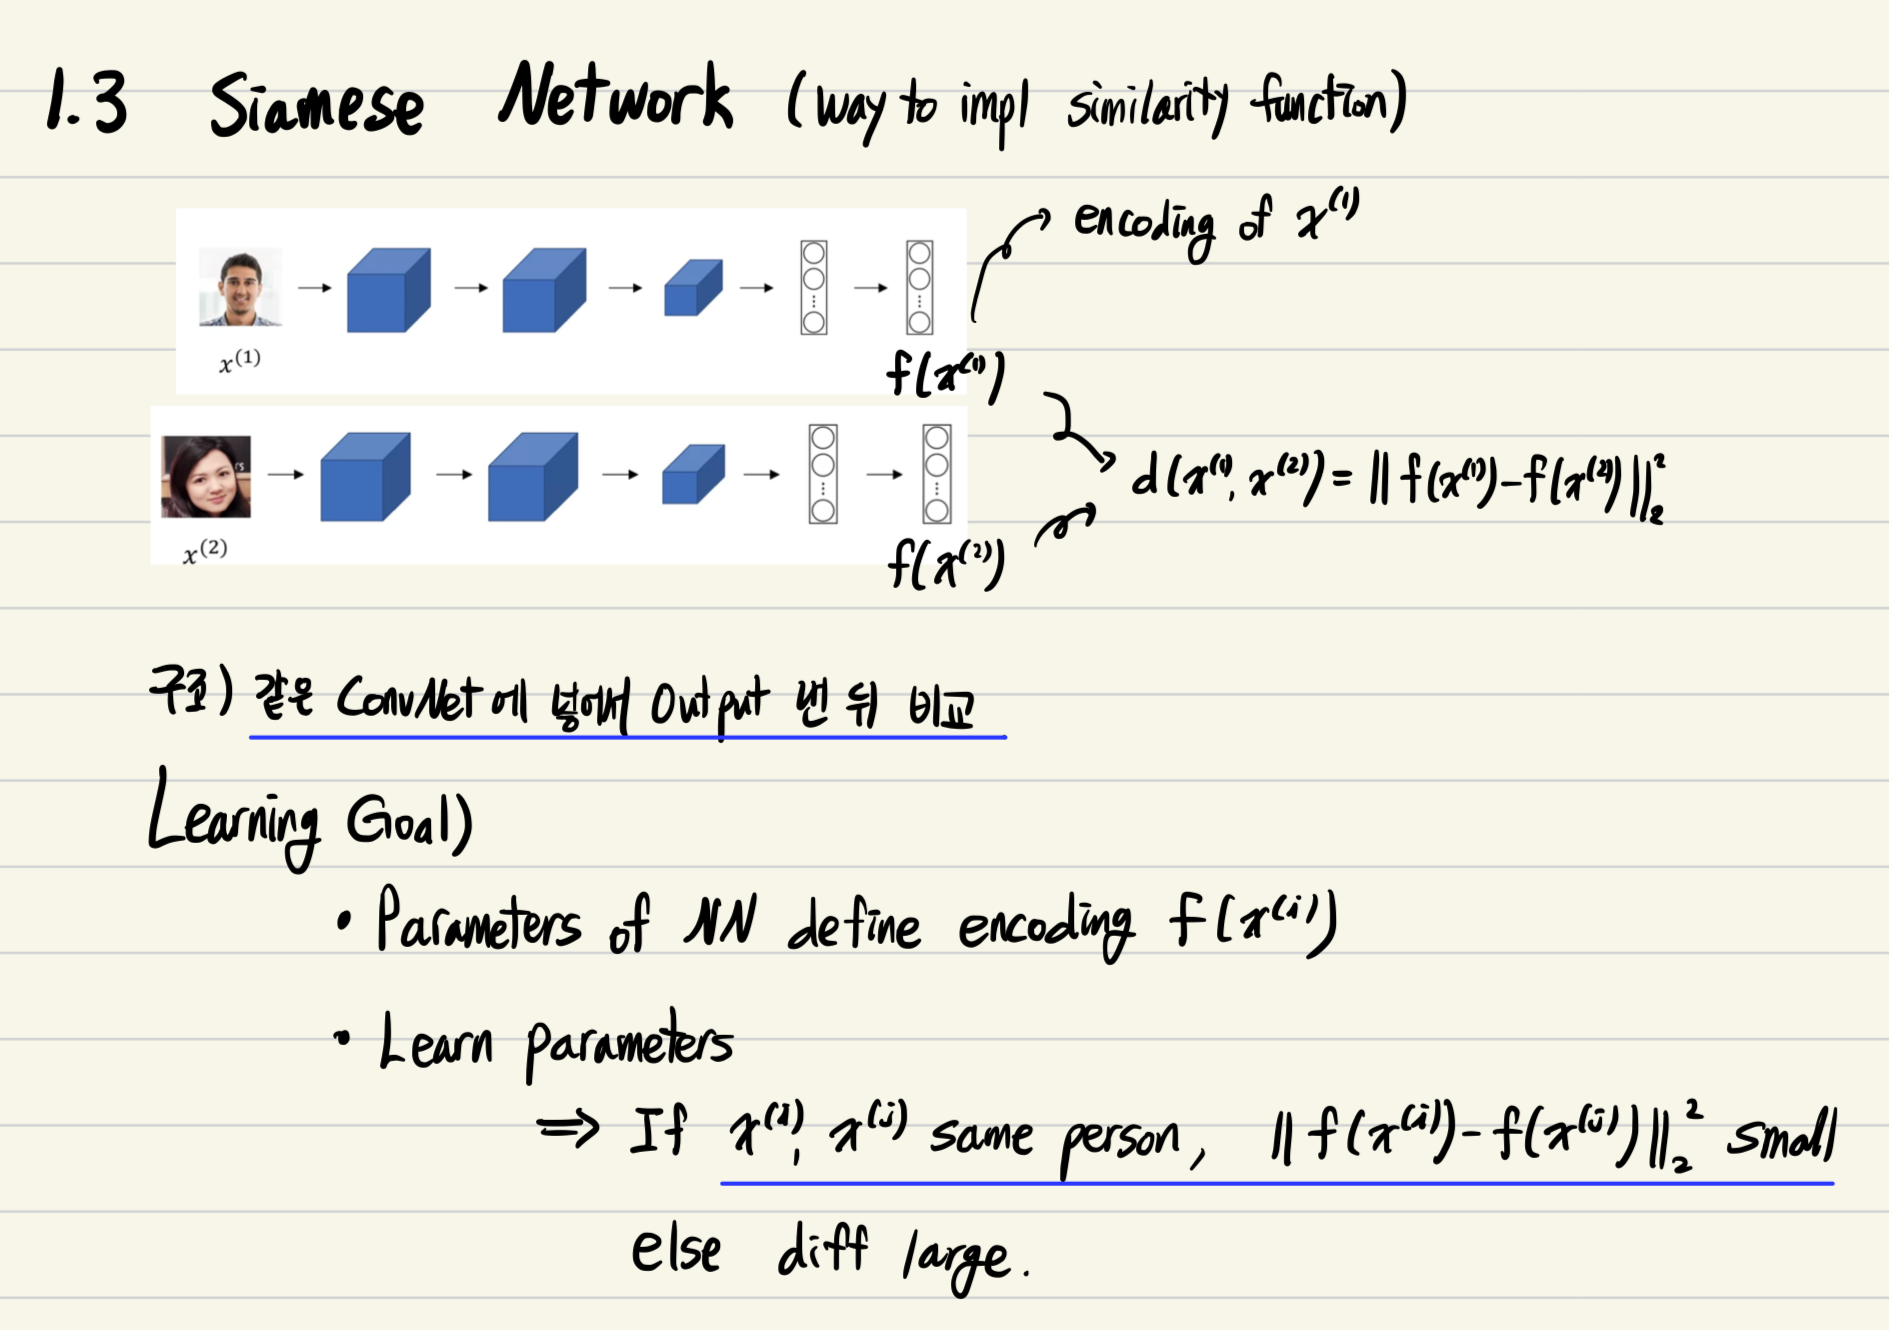 1.3 Siamese Network (way to impl similarity function)
encoding of x⁽¹⁾
x⁽¹⁾
f(x⁽¹⁾)
rs
d(x⁽¹⁾, x⁽²⁾) = || f(x⁽¹⁾) - f(x⁽²⁾) ||₂²
x⁽²⁾
f(x⁽²⁾)
구조) 같은 ConvNet에 넣어서 Output 맨 뒤 비교
Learning Goal)
• Parameters of NN define encoding f(x⁽ⁱ⁾)
• Learn parameters
⇒ If x⁽ⁱ⁾, x⁽ʲ⁾ same person, || f(x⁽ⁱ⁾) - f(x⁽ʲ⁾) ||₂² small
else diff large.